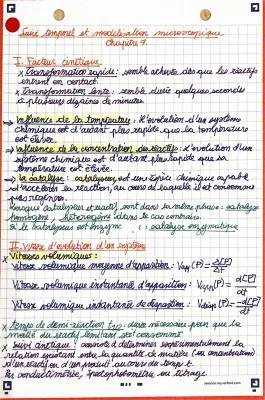 Suivi temporel et modélisation microscopique
Chapitre 7.
I. Facteur cinétique.
x Transformation rapide : semble achevée dès que les réactifs
entrent en contact.
x Transformation lente : semble durée quelques secondes
à plusieurs dizaines de minutes.
→ Influence de la température : L'évolution d'un système
chimique est d'autant plus rapide que la température
est élevée.
→ Influence de la concentration des réactifs : l'évolution d'un
système chimique est d'autant plus rapide que sa
température est élevée.
→ La catalyse : catalyseur est un espèce chimique capable
d'accélérer la réaction, au cours de laquelle il est consommé
puis régénéré.
Lorsque catalyseur et réactif sont dans la même phase : catalyse
homogène, hétérogène dans le cas contraire.
Si le catalyseur est enzyme : catalyse enzymatique
II. Vitesse d'évolution d'un système
x Vitesses volumiques :
Vitesse volumique moyenne d'apparition : Vapp(P) = Δ[P]/ΔT
Vitesse volumique instantanée d'apparition : Vapp(P) = d[P]/dt
Vitesse volumique instantanée de disparition : Vdisp(P) = -d[P]/dt
x Temps de demi-réaction t1/2 : durée nécessaire pour que la
moitié du réactif limitant soit consommé
x Suivi cinétique : consiste à déterminer expérimentalement la
relation existant entre la quantité de matière (ou concentration)
d'un réactif/d'un produit au cours du temps t.
La conductimétrie, spectrophotométrie ou titrage